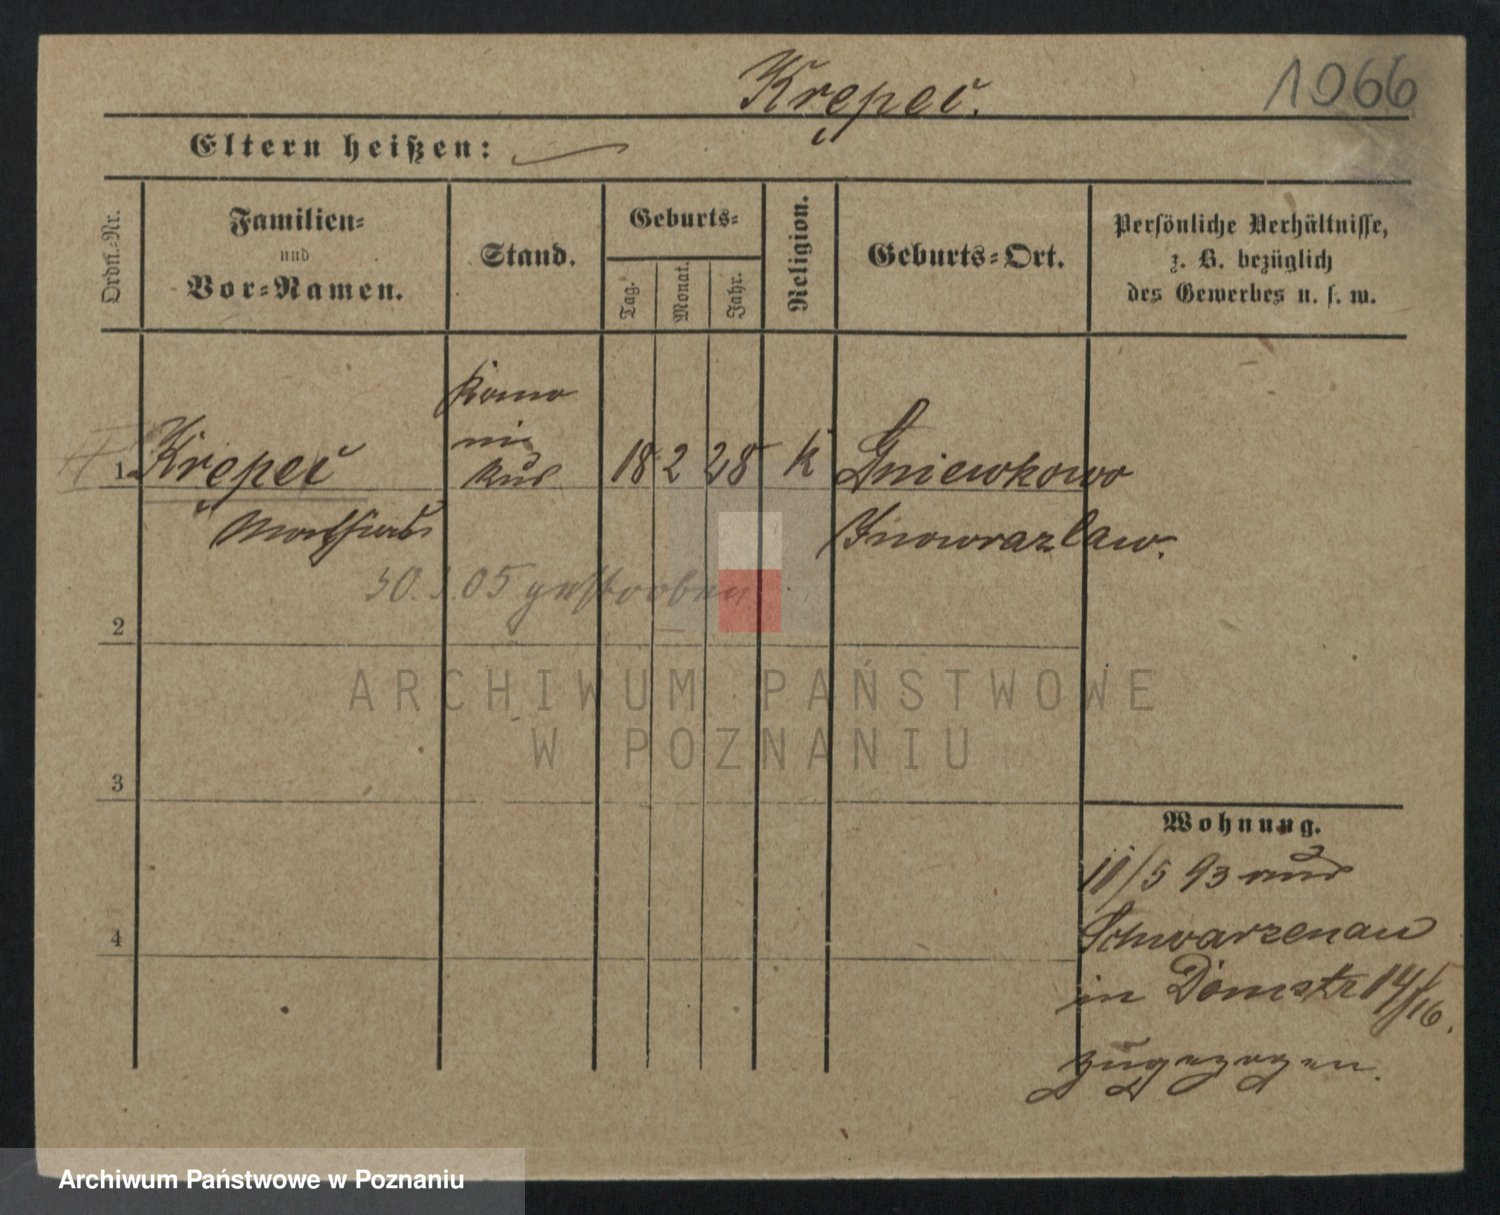 Krępeć.
1966
Eltern heißen:
Ordn.-Nr.
Familien-
und
Vor-Namen.
Stand.
Geburts-
Tag.
Monat.
Jahr.
Religion.
Geburts-Ort.
Persönliche Verhältnisse,
z. B. bezüglich
des Gewerbes u. s. w.
1. Krępeć
Kano
ni
kus
18 2 28 K Gniewkowo
Inowrazlaw.
30. 05 gestorben
2
ARCHIWUM PAŃSTWOWE
W POZNANIU
3
Wohnung.
11/5 93 aus
Schwarzenau
in Domstr 14/16.
zugezogen.
4
Archiwum Państwowe w Poznaniu